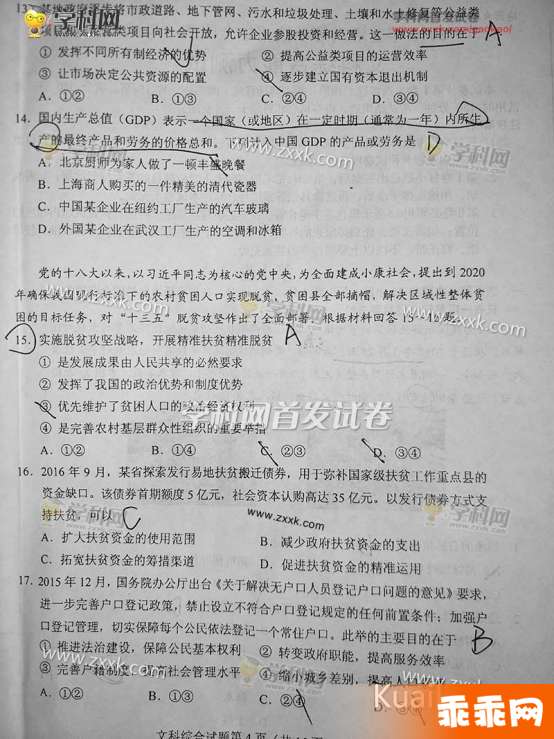 13. 某地政府逐步将市政道路、地下管网、污水和垃圾处理、土壤和水土修复等公益类
项目向社会开放，允许企业参股投资和经营。这一做法的目的在于 A
① 发挥不同所有制经济的优势 ② 提高公益类项目的运营效率
③ 让市场决定公共资源的配置 ④ 逐步建立国有资本退出机制
A．①② B．①③ C．②④ D．③④
14. 国内生产总值（GDP）表示一个国家（或地区）在一定时期（通常为一年）内所生
产的最终产品和劳务的价格总和。下列计入中国 GDP 的产品或劳务是 D
A．北京厨师为家人做了一顿丰盛晚餐
B．上海商人购买的一件精美的清代瓷器
C．中国某企业在纽约工厂生产的汽车玻璃
D．外国某企业在武汉工厂生产的空调和冰箱
党的十八大以来，以习近平同志为核心的党中央，为全面建成小康社会，提出到 2020
年确保我国现行标准下的农村贫困人口实现脱贫，贫困县全部摘帽，解决区域性整体贫
困的目标任务，对“十三五”脱贫攻坚作出了全面部署。根据材料回答 15～16 题。
15. 实施脱贫攻坚战略，开展精准扶贫精准脱贫 A
① 是发展成果由人民共享的必然要求
② 发挥了我国的政治优势和制度优势
③ 优先维护了贫困人口的政治经济权利
④ 是完善农村基层群众性组织的重要举措
A．①② B．①④ C．②③ D．③④
16. 2016 年 9 月，某省探索发行易地扶贫搬迁债券，用于弥补国家级扶贫工作重点县的
资金缺口。该债券首期额度 5 亿元，社会资本认购高达 35 亿元。以发行债券方式支
持扶贫，可以 C
A．扩大扶贫资金的使用范围 B．减少政府扶贫资金的支出
C．拓宽扶贫资金的筹措渠道 D．促进扶贫资金的精准运用
17. 2015 年 12 月，国务院办公厅出台《关于解决无户口人员登记户口问题的意见》要求，
进一步完善户口登记政策，禁止设立不符合户口登记规定的任何前置条件；加强户
口登记管理，切实保障每个公民依法登记一个常住户口。此举的主要目的在于 B
① 推进法治建设，保障公民基本权利 ② 转变政府职能，提高服务效率
③ 完善户籍制度，提高社会管理水平 ④ 缩小城乡差别，提高人
A．①② B．①③ C．②④ D．③④
文科综合试题第 4 页（共
学科网
www.zxxk.com
学科网首发试卷
Kuai
乖乖网